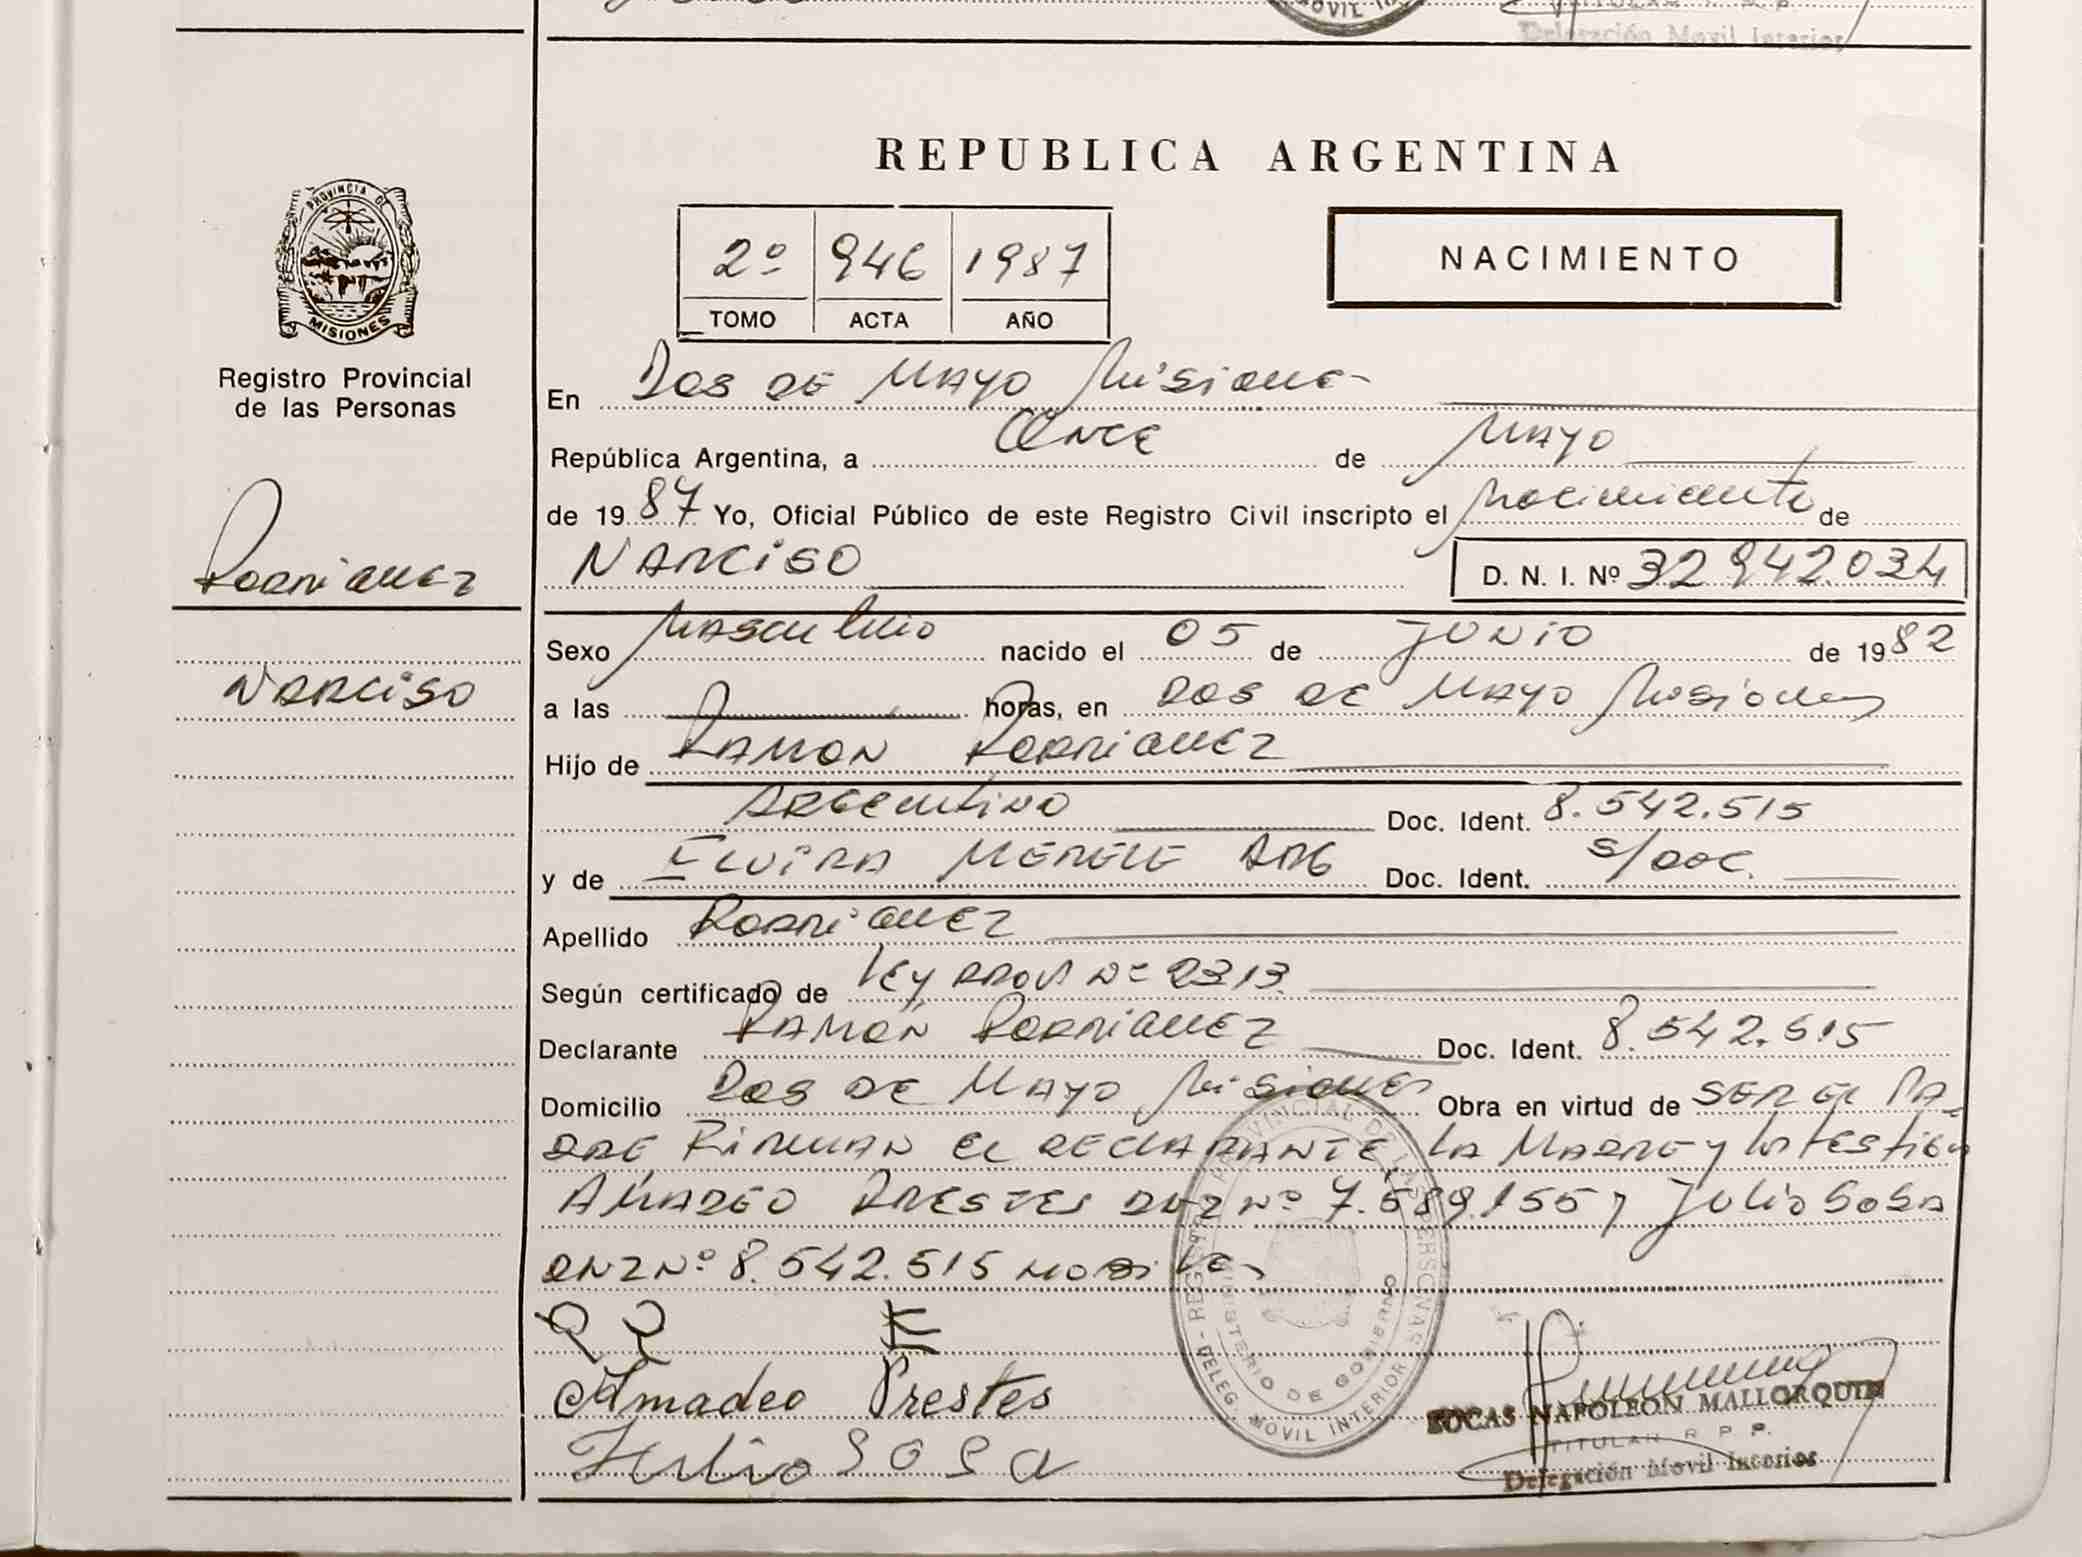 Delegación Movil Interior
REPUBLICA ARGENTINA
PROVINCIA DE
MISIONES
2º 946 1987
TOMO ACTA AÑO
NACIMIENTO
Registro Provincial
de las Personas
En Dos DE MAYO Misiones
República Argentina, a Once de MAYO
de 1987 Yo, Oficial Público de este Registro Civil inscripto el Nacimiento de
Rodriguez
NARCISO D. N. I. Nº 32.942.034
Sexo Masculino nacido el 05 de JUNIO de 1982
NARCISO
a las horas, en Dos DE MAYO Misiones
Hijo de RAMON Rodriguez
ARGentino Doc. Ident. 8.542.515
y de ELVIRA MERELE ARG Doc. Ident. s/Doc.
Apellido Rodriguez
Según certificado de Ley PROV Nº 2313
Declarante RAMÓN Rodriguez Doc. Ident. 8.542.515
Domicilio Dos DE MAYO Misiones Obra en virtud de SER EL PA-
DRE FIRMAN EL DECLARANTE, LA MADRE y los testigos
AMADEO PRESTES DNI Nº 7.589.155 y Julio SOSA
DNI Nº 8.542.515
Amadeo Prestes
Julio SOSA
REGISTRO PROVINCIAL DE LAS PERSONAS
MINISTERIO DE GOBIERNO
DELEG. MOVIL INTERIOR
NAPOLEON MALLORQUIN
TITULAR R. P. P.
Delegación Movil Interior